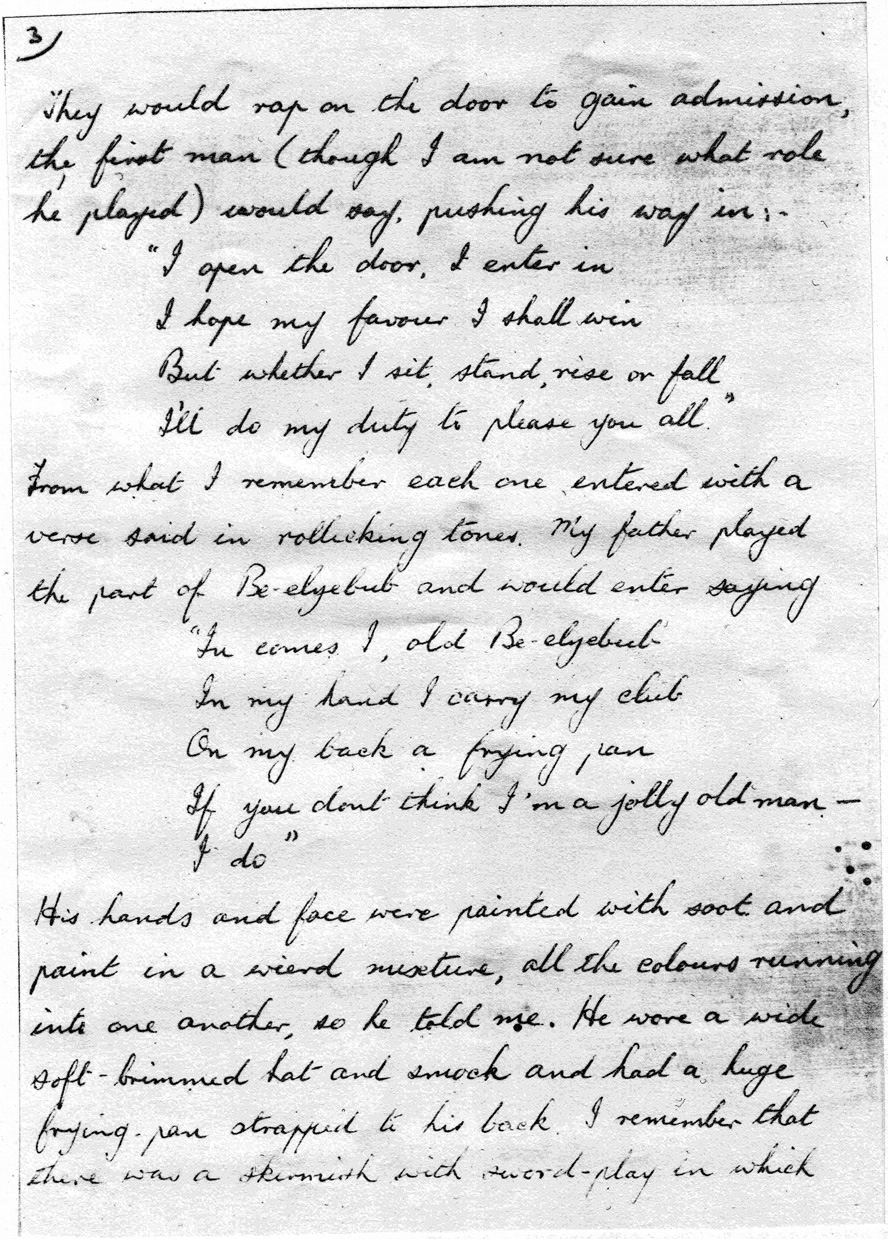 3
They would rap on the door to gain admission,
the first man (though I am not sure what role
he played) would say, pushing his way in:-
"I open the door, I enter in
I hope my favour I shall win
But whether I sit, stand, rise or fall
I'll do my duty to please you all."
From what I remember each one entered with a
verse said in rollicking tones. My father played
the part of Be-elzebub and would enter saying
"In comes I, old Be-elzebub
In my hand I carry my club
On my back a frying pan
If you dont think I'm a jolly old man —
I do"
His hands and face were painted with soot and
paint in a wierd mixture, all the colours running
into one another, so he told me. He wore a wide
soft-brimmed hat and smock and had a huge
frying-pan strapped to his back. I remember that
there was a skirmish with sword-play in which